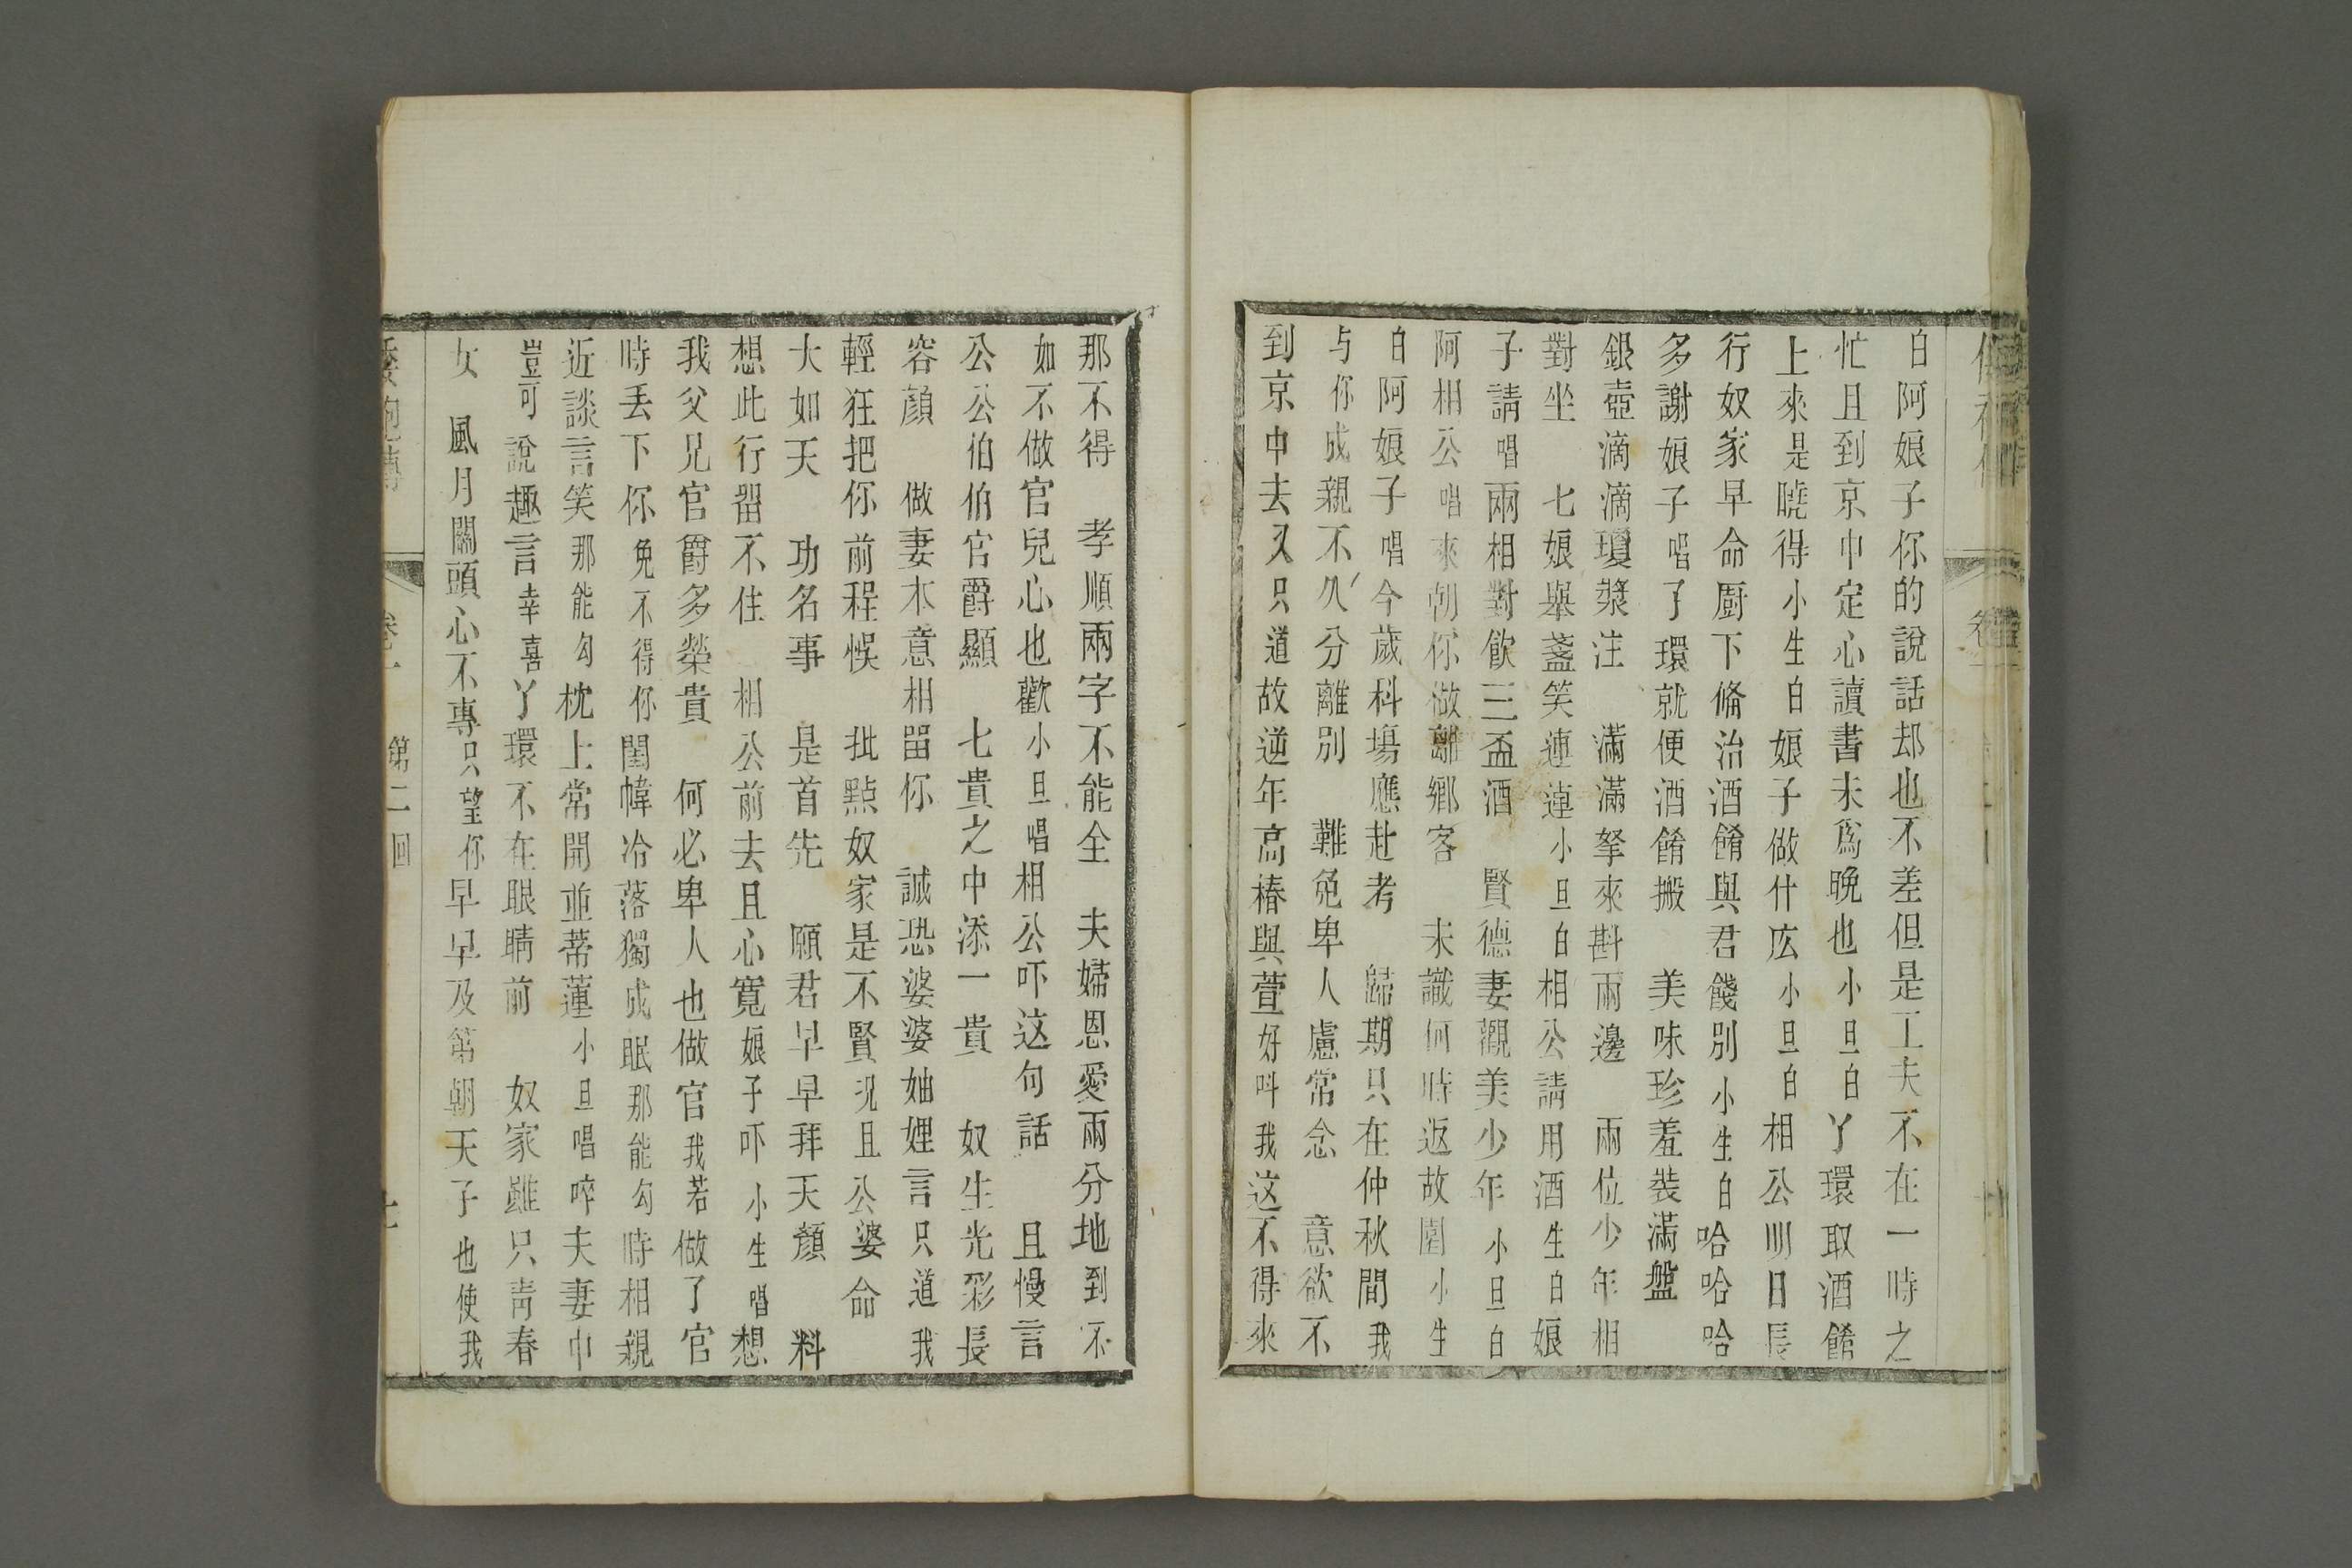 白阿娘子你的說話却也不差但是工夫不在一時之
忙且到京中定心讀書未爲晚也小旦白丫環取酒餚
上來是曉得小生白娘子做什庅小旦白相公明日長
行奴家早命厨下俻治酒餚與君餞別小生白哈哈哈
多謝娘子唱了環就便酒餚搬 美味珍羞裝滿盤
銀壺滴滴瓊漿注 滿滿拏來斟兩邊 兩位少年相
對坐 七娘舉盞笑連連小旦白相公請用酒生白娘
子請唱兩相對飲三盃酒 賢德妻觀美少年小旦白
阿相公唱來朝你做離鄉客 未識何時返故園小生
白阿娘子唱今歲科塲應赴考 歸期只在仲秋間我
与你成親不久分離別 難兔卑人慮常念 意欲不
到京中去又只道故逆年高椿與萱好呌我这不得來
那不得 孝順兩字不能全 夫婦恩愛兩分地到不
如不做官兒心也歡小旦唱相公吓这句話 且慢言
公公伯伯官爵顯 七貴之中添一貴 奴生光彩長
容顏 做妻本意相畱你 誠恐婆婆妯娌言只道我
輕狂把你前程悞 批點奴家是不賢況且公婆命
大如天 功名事 是首先 願君早早拜天顏 料
想此行畱不住 相公前去且心寬娘子吓小生唱想
我父兄官爵多榮貴 何必卑人也做官我若做了官
時丢下你免不得你閨幃冷落獨成眠那能勾時相親
近談言笑那能勾枕上常開並蒂蓮小旦唱啐夫妻巾
豈可說趣言幸喜丫環不在眼睛前 奴家雖只靑春
女 風月關頭心不專只望你早早及第朝天子也使我
卷一 第二回